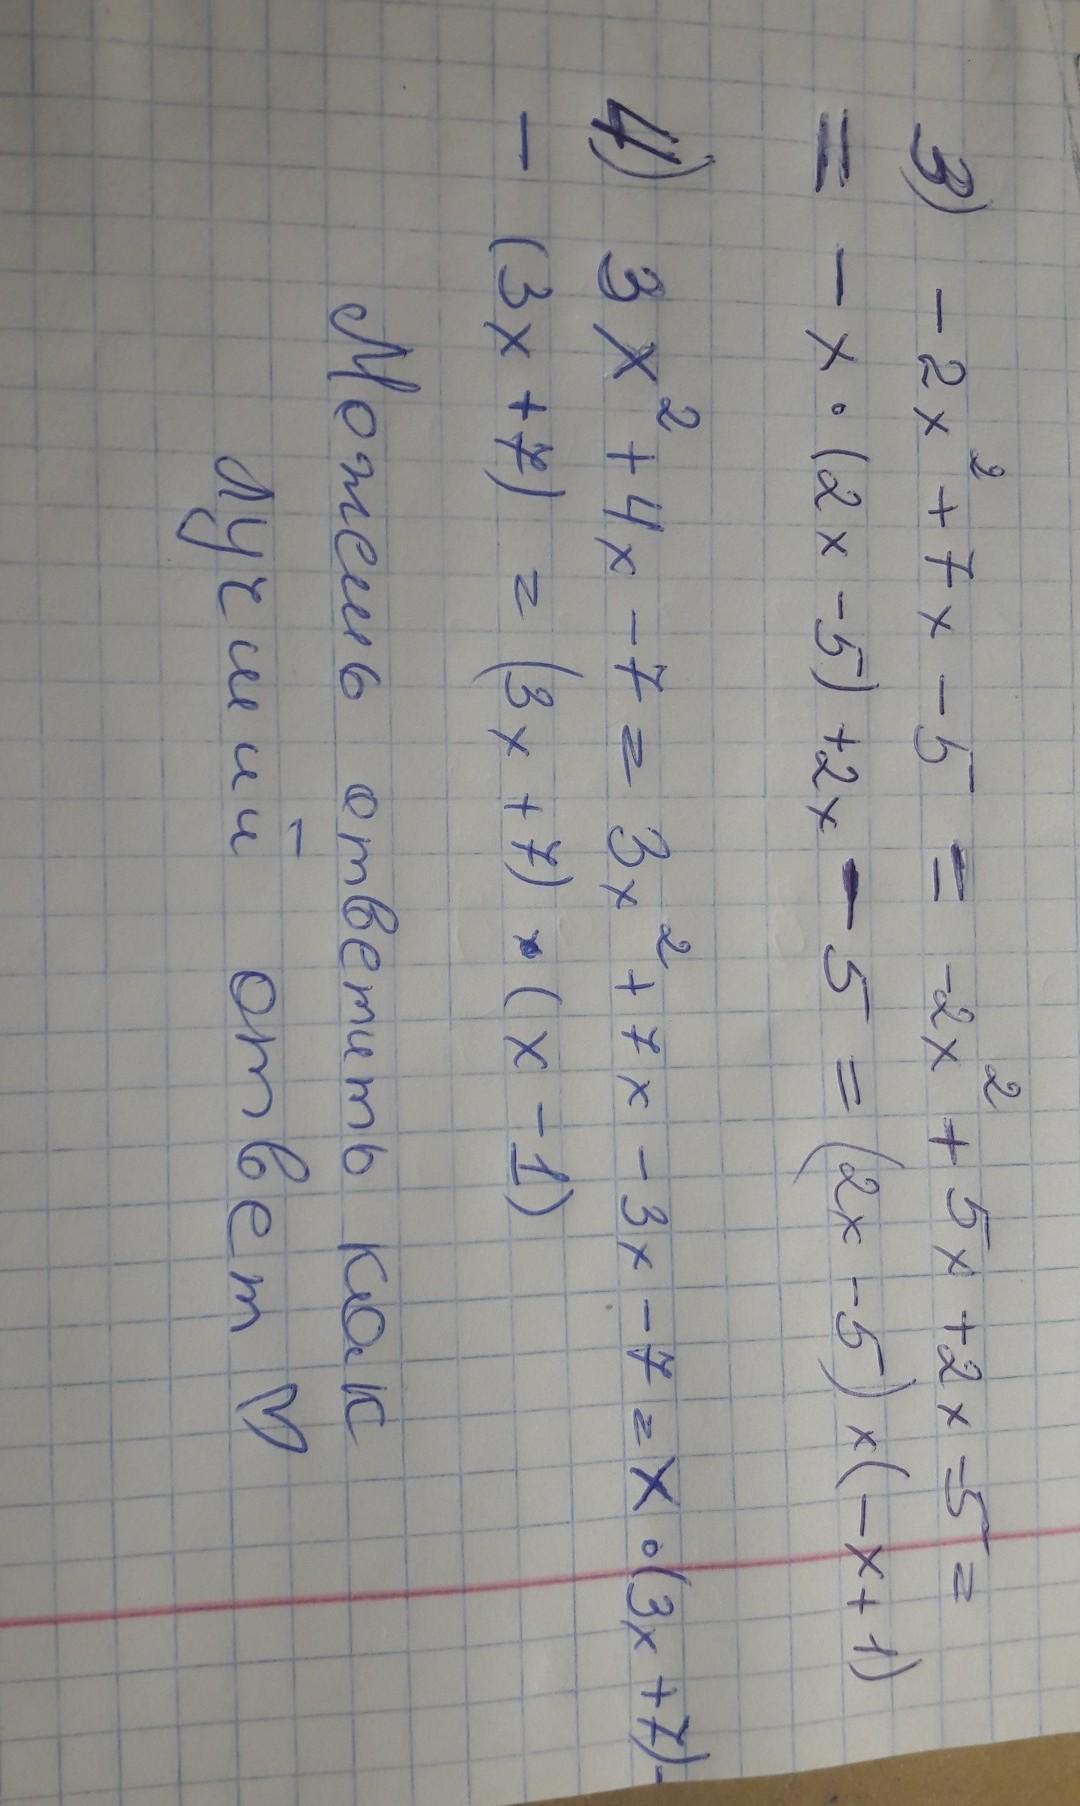 3) -2x² + 7x - 5 = -2x² + 5x + 2x - 5 =
= - x · (2x - 5) + 2x - 5 = (2x - 5) × (-x + 1)
4) 3x² + 4x - 7 = 3x² + 7x - 3x - 7 = x · (3x + 7) -
- (3x + 7) = (3x + 7) · (x - 1)
Можешь ответить как
лучший ответ ♡